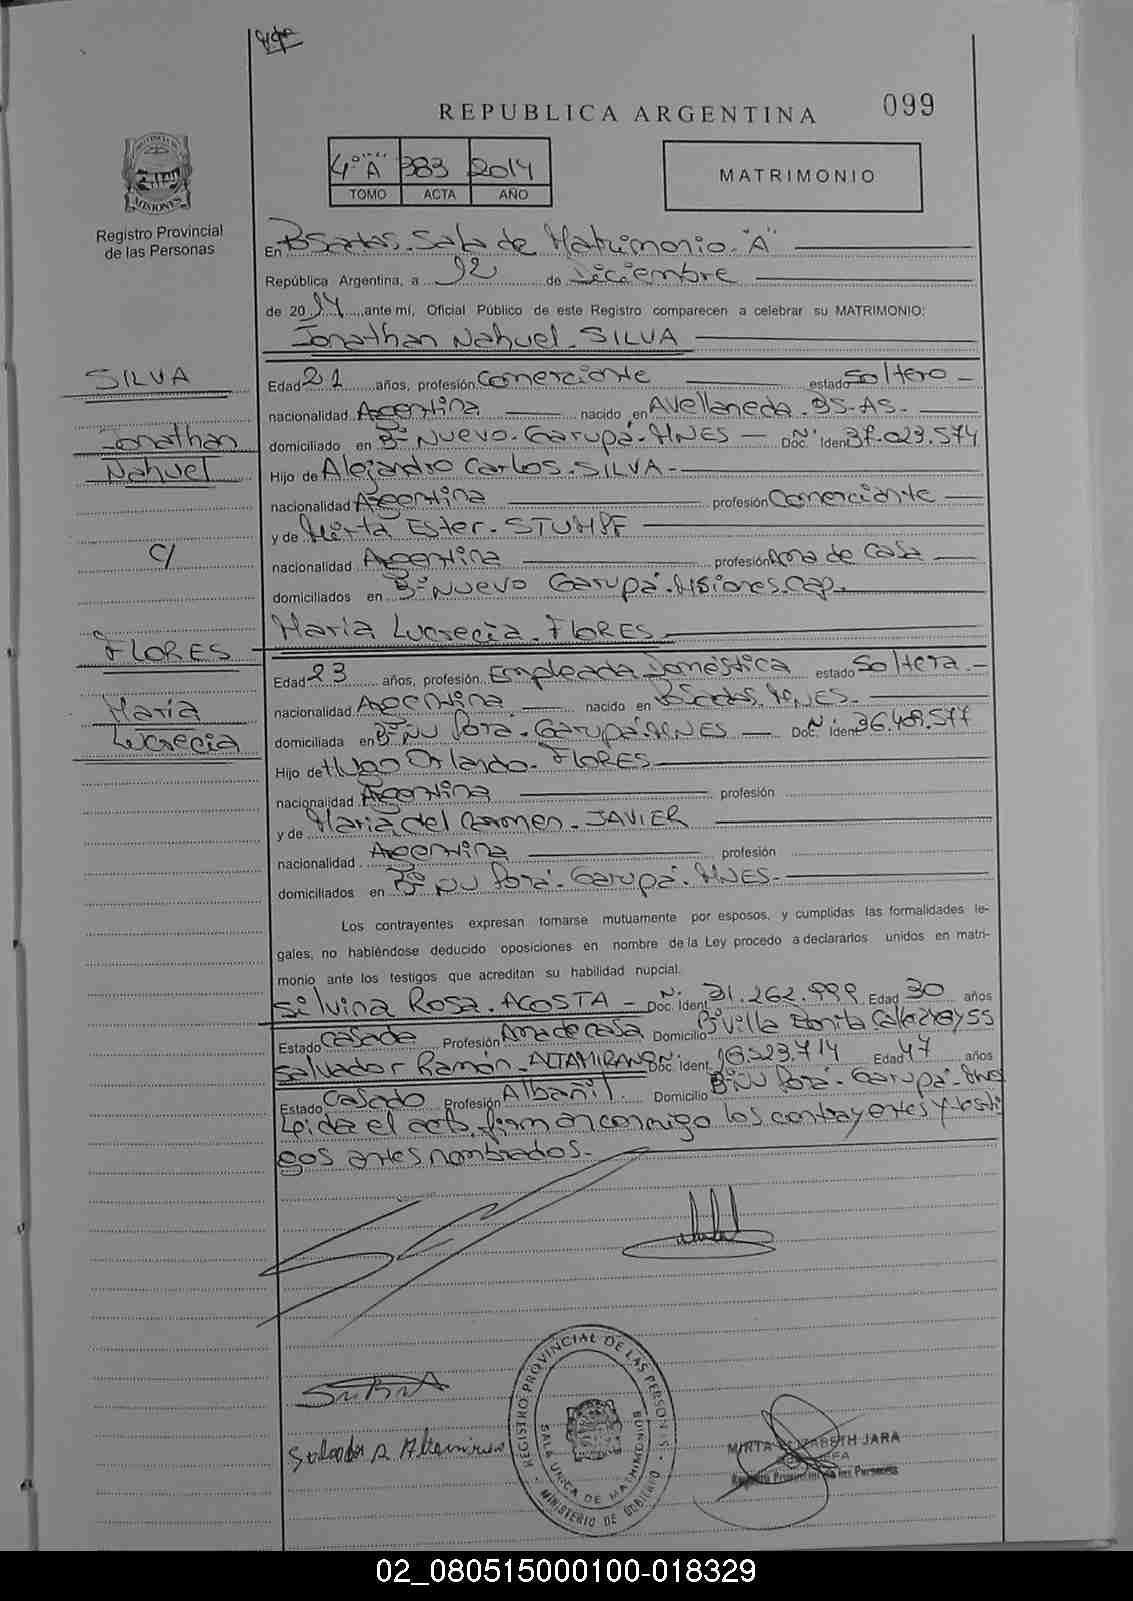 REPUBLICA ARGENTINA
099
4º "A" 383 2014
TOMO ACTA AÑO
MATRIMONIO
MISIONES
Registro Provincial
de las Personas
En Posadas. Sala de Matrimonio. "A"
República Argentina, a 12 de Diciembre
de 2014, ante mí, Oficial Público de este Registro comparecen a celebrar su MATRIMONIO:
Jonathan Nahuel. SILVA
SILVA
Jonathan
Nahuel
c/
FLORES
María
Lucrecia
Edad 21 años, profesión Comerciante estado Soltero
nacionalidad Argentina nacido en Avellaneda. BS-AS.
domiciliado en Bº Nuevo. Garupá. MNES Doc. Iden. Nº 37.023.574
Hijo de Alejandro Carlos. SILVA
nacionalidad Argentina profesión Comerciante
y de Mirta Ester. STUMPF
nacionalidad Argentina profesión Ama de Casa
domiciliados en Bº Nuevo Garupá. Misiones. Cap.
María Lucrecia. FLORES
Edad 23 años, profesión Empleada Doméstica estado Soltera
nacionalidad Argentina nacido en Posadas. MNES.
domiciliada en Bº Ñu Porá. Garupá. MNES Doc. Iden. Nº 36.409.577
Hijo de Hugo Orlando. FLORES
nacionalidad Argentina profesión
y de María del Carmen. JAVIER
nacionalidad Argentina profesión
domiciliados en Bº Ñu Porá. Garupá. MNES.
Los contrayentes expresan tomarse mutuamente por esposos, y cumplidas las formalidades le-
gales, no habiéndose deducido oposiciones en nombre de la Ley procedo a declararlos unidos en matri-
monio ante los testigos que acreditan su habilidad nupcial.
Silvina Rosa. ACOSTA Doc. Ident. Nº 31.262.999 Edad 30 años
Estado Casada Profesión Ama de Casa Domicilio Bº Villa Bonita
Salvador Ramón. ALTAMIRANO Doc. Ident. Nº 18.523.714 Edad 47 años
Estado Casado Profesión Albañil. Domicilio Bº Ñu Porá. Garupá.
Leída el acta, firman conmigo los contrayentes y testi
gos antes nombrados.
Salvador R Altamirano
REGISTRO PROVINCIAL DE LAS PERSONAS
SALA UNICA DE MATRIMONIOS
MINISTERIO DE GOBIERNO
MIRTA ELIZABETH JARA
Registro Provincial de las Personas
02_080515000100-018329